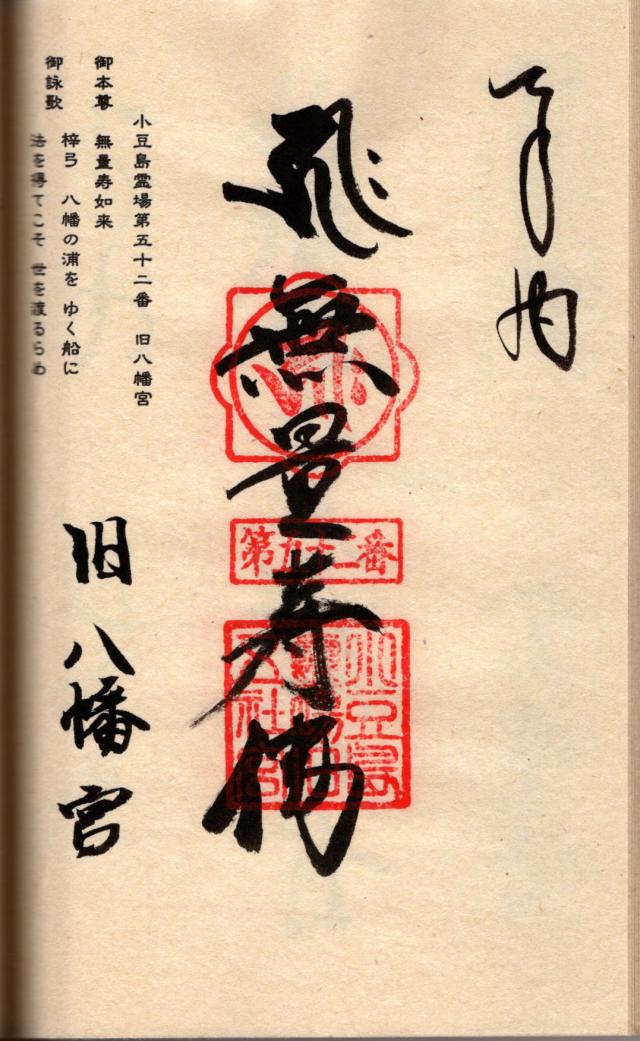 奉納
無量寿佛
第五十二番
小豆島
小豆島霊場第五十二番 旧八幡宮
御本尊 無量寿如来
御詠歌 梓弓 八幡の浦を ゆく船に
法を得てこそ 世を渡るらめ
旧八幡宮